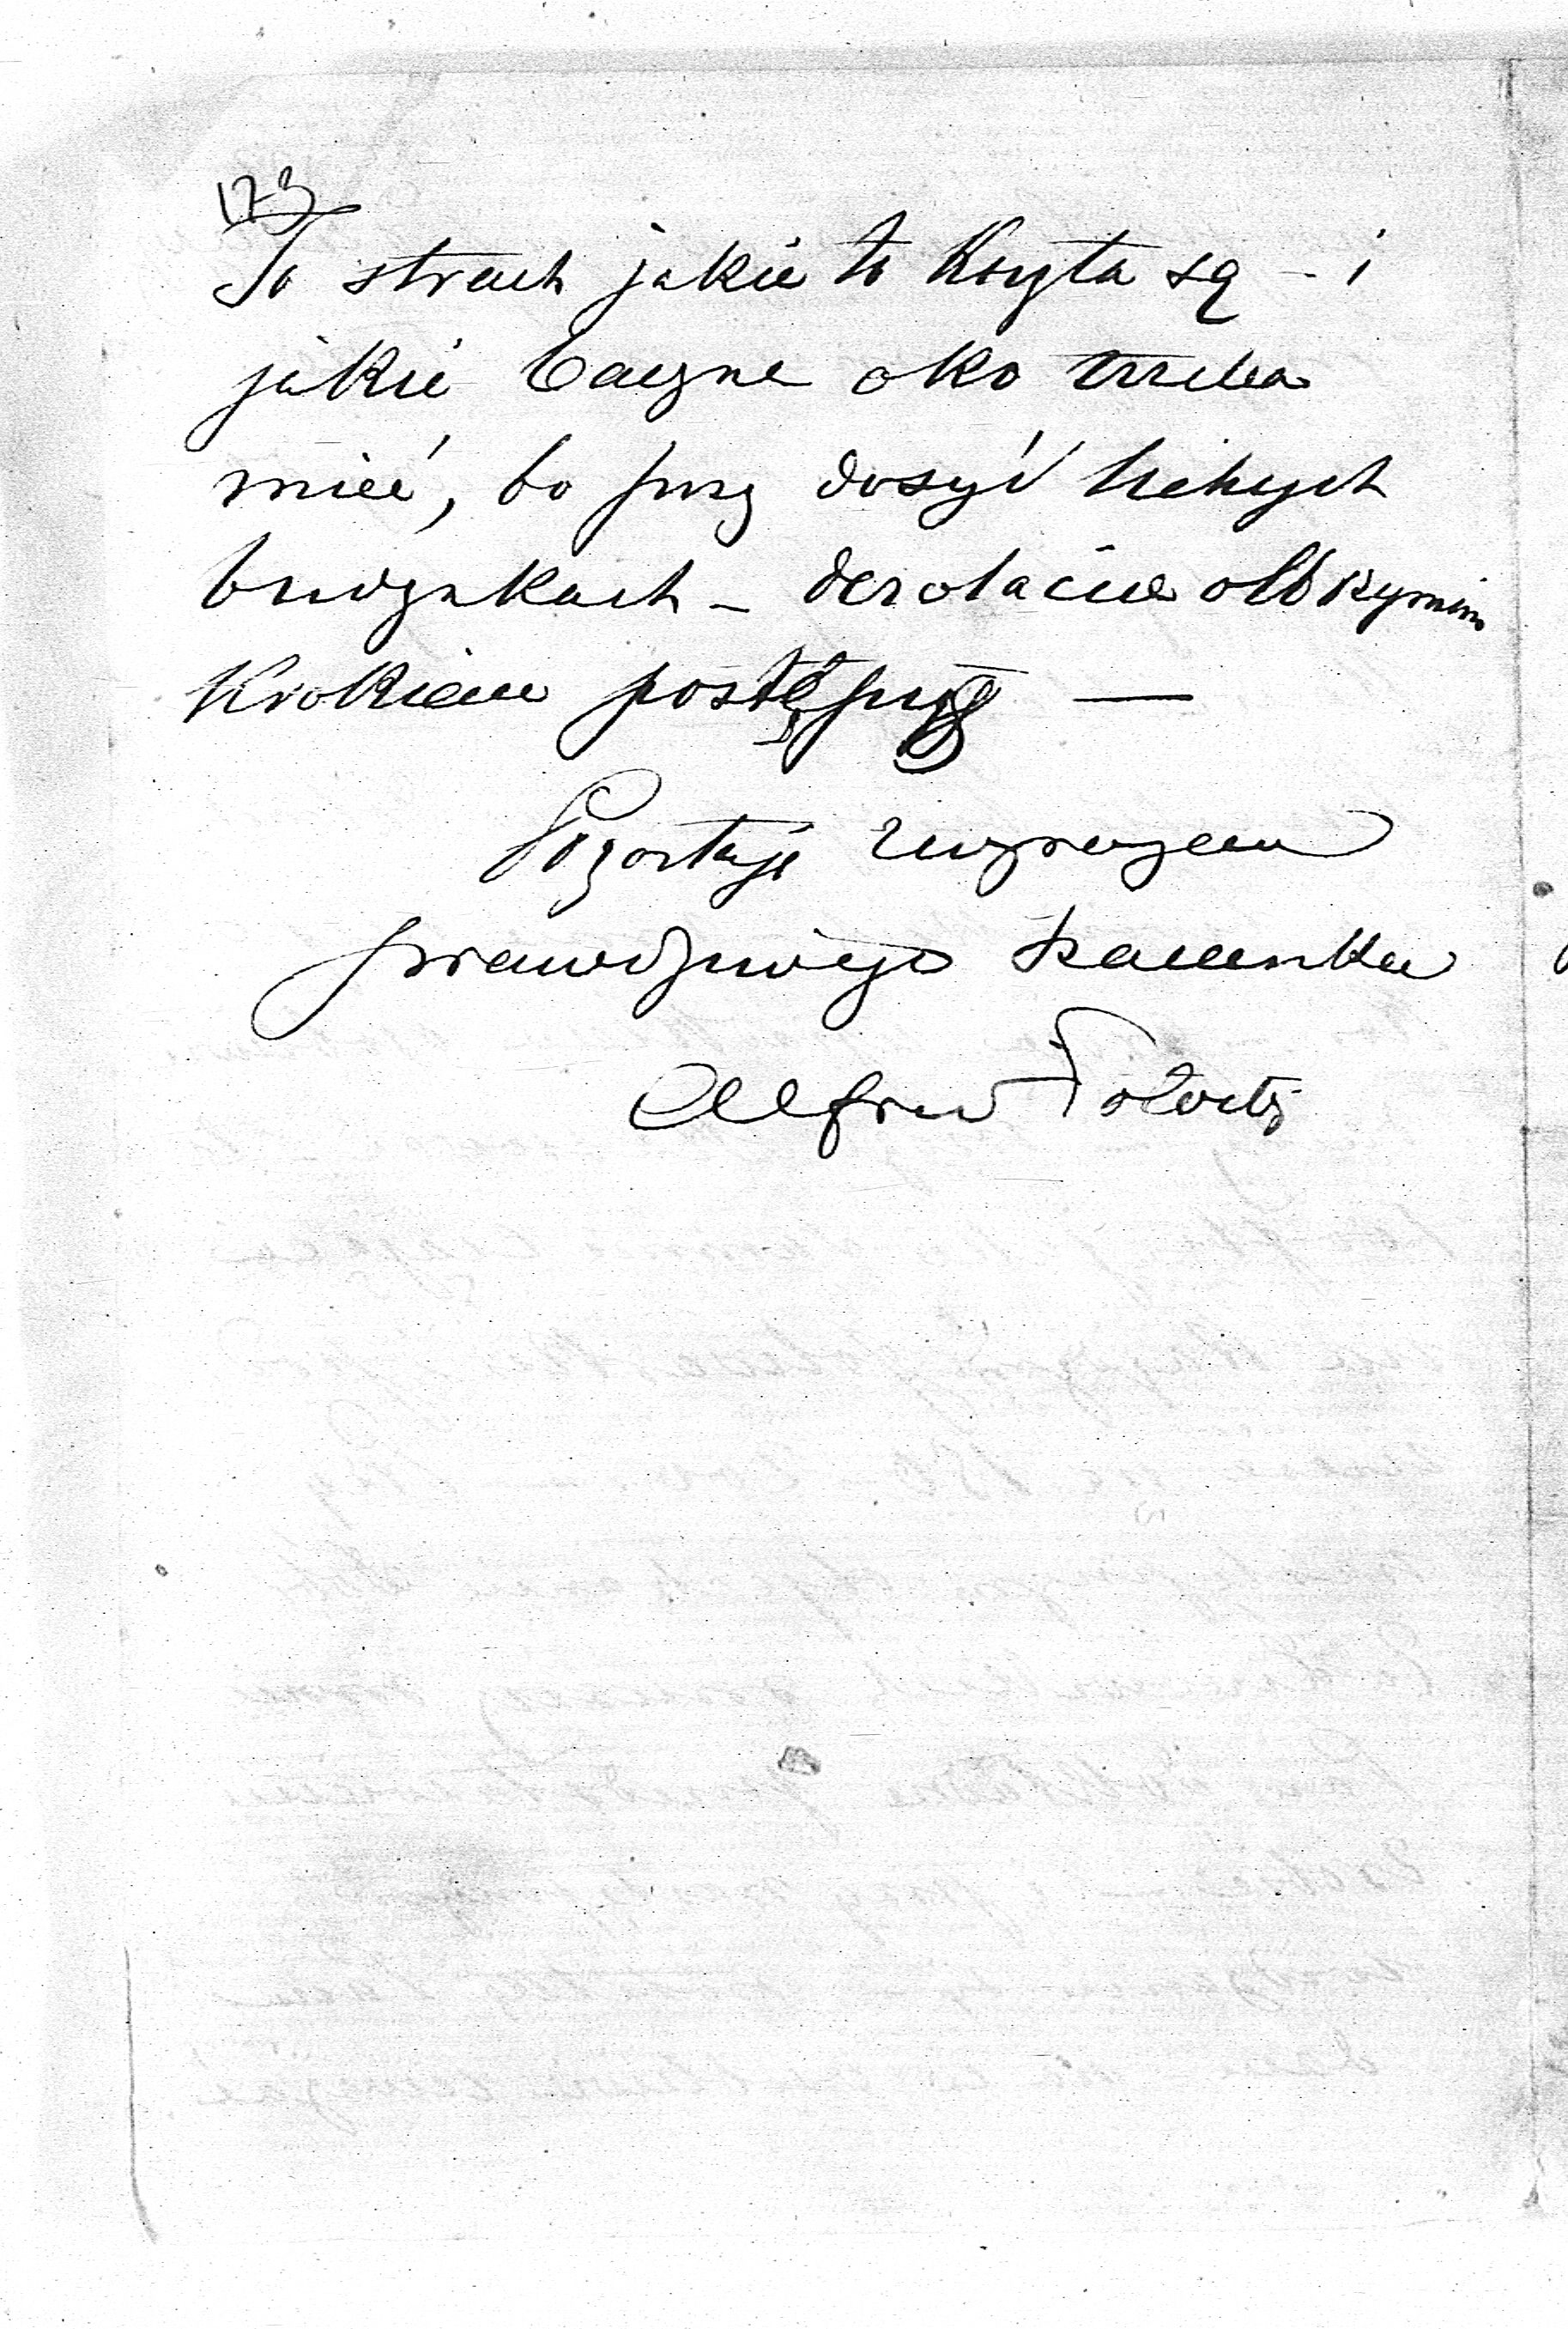 173
To strach jakie to Koszta są – i
jakie baczne oko trzeba
mieć, bo przy dosyć lichych
budynkach – desolacia olbrzymim
Krokiem postępuje —
Pozostaję z wyrazem
prawdziwego szacunku
Alfred Potocki